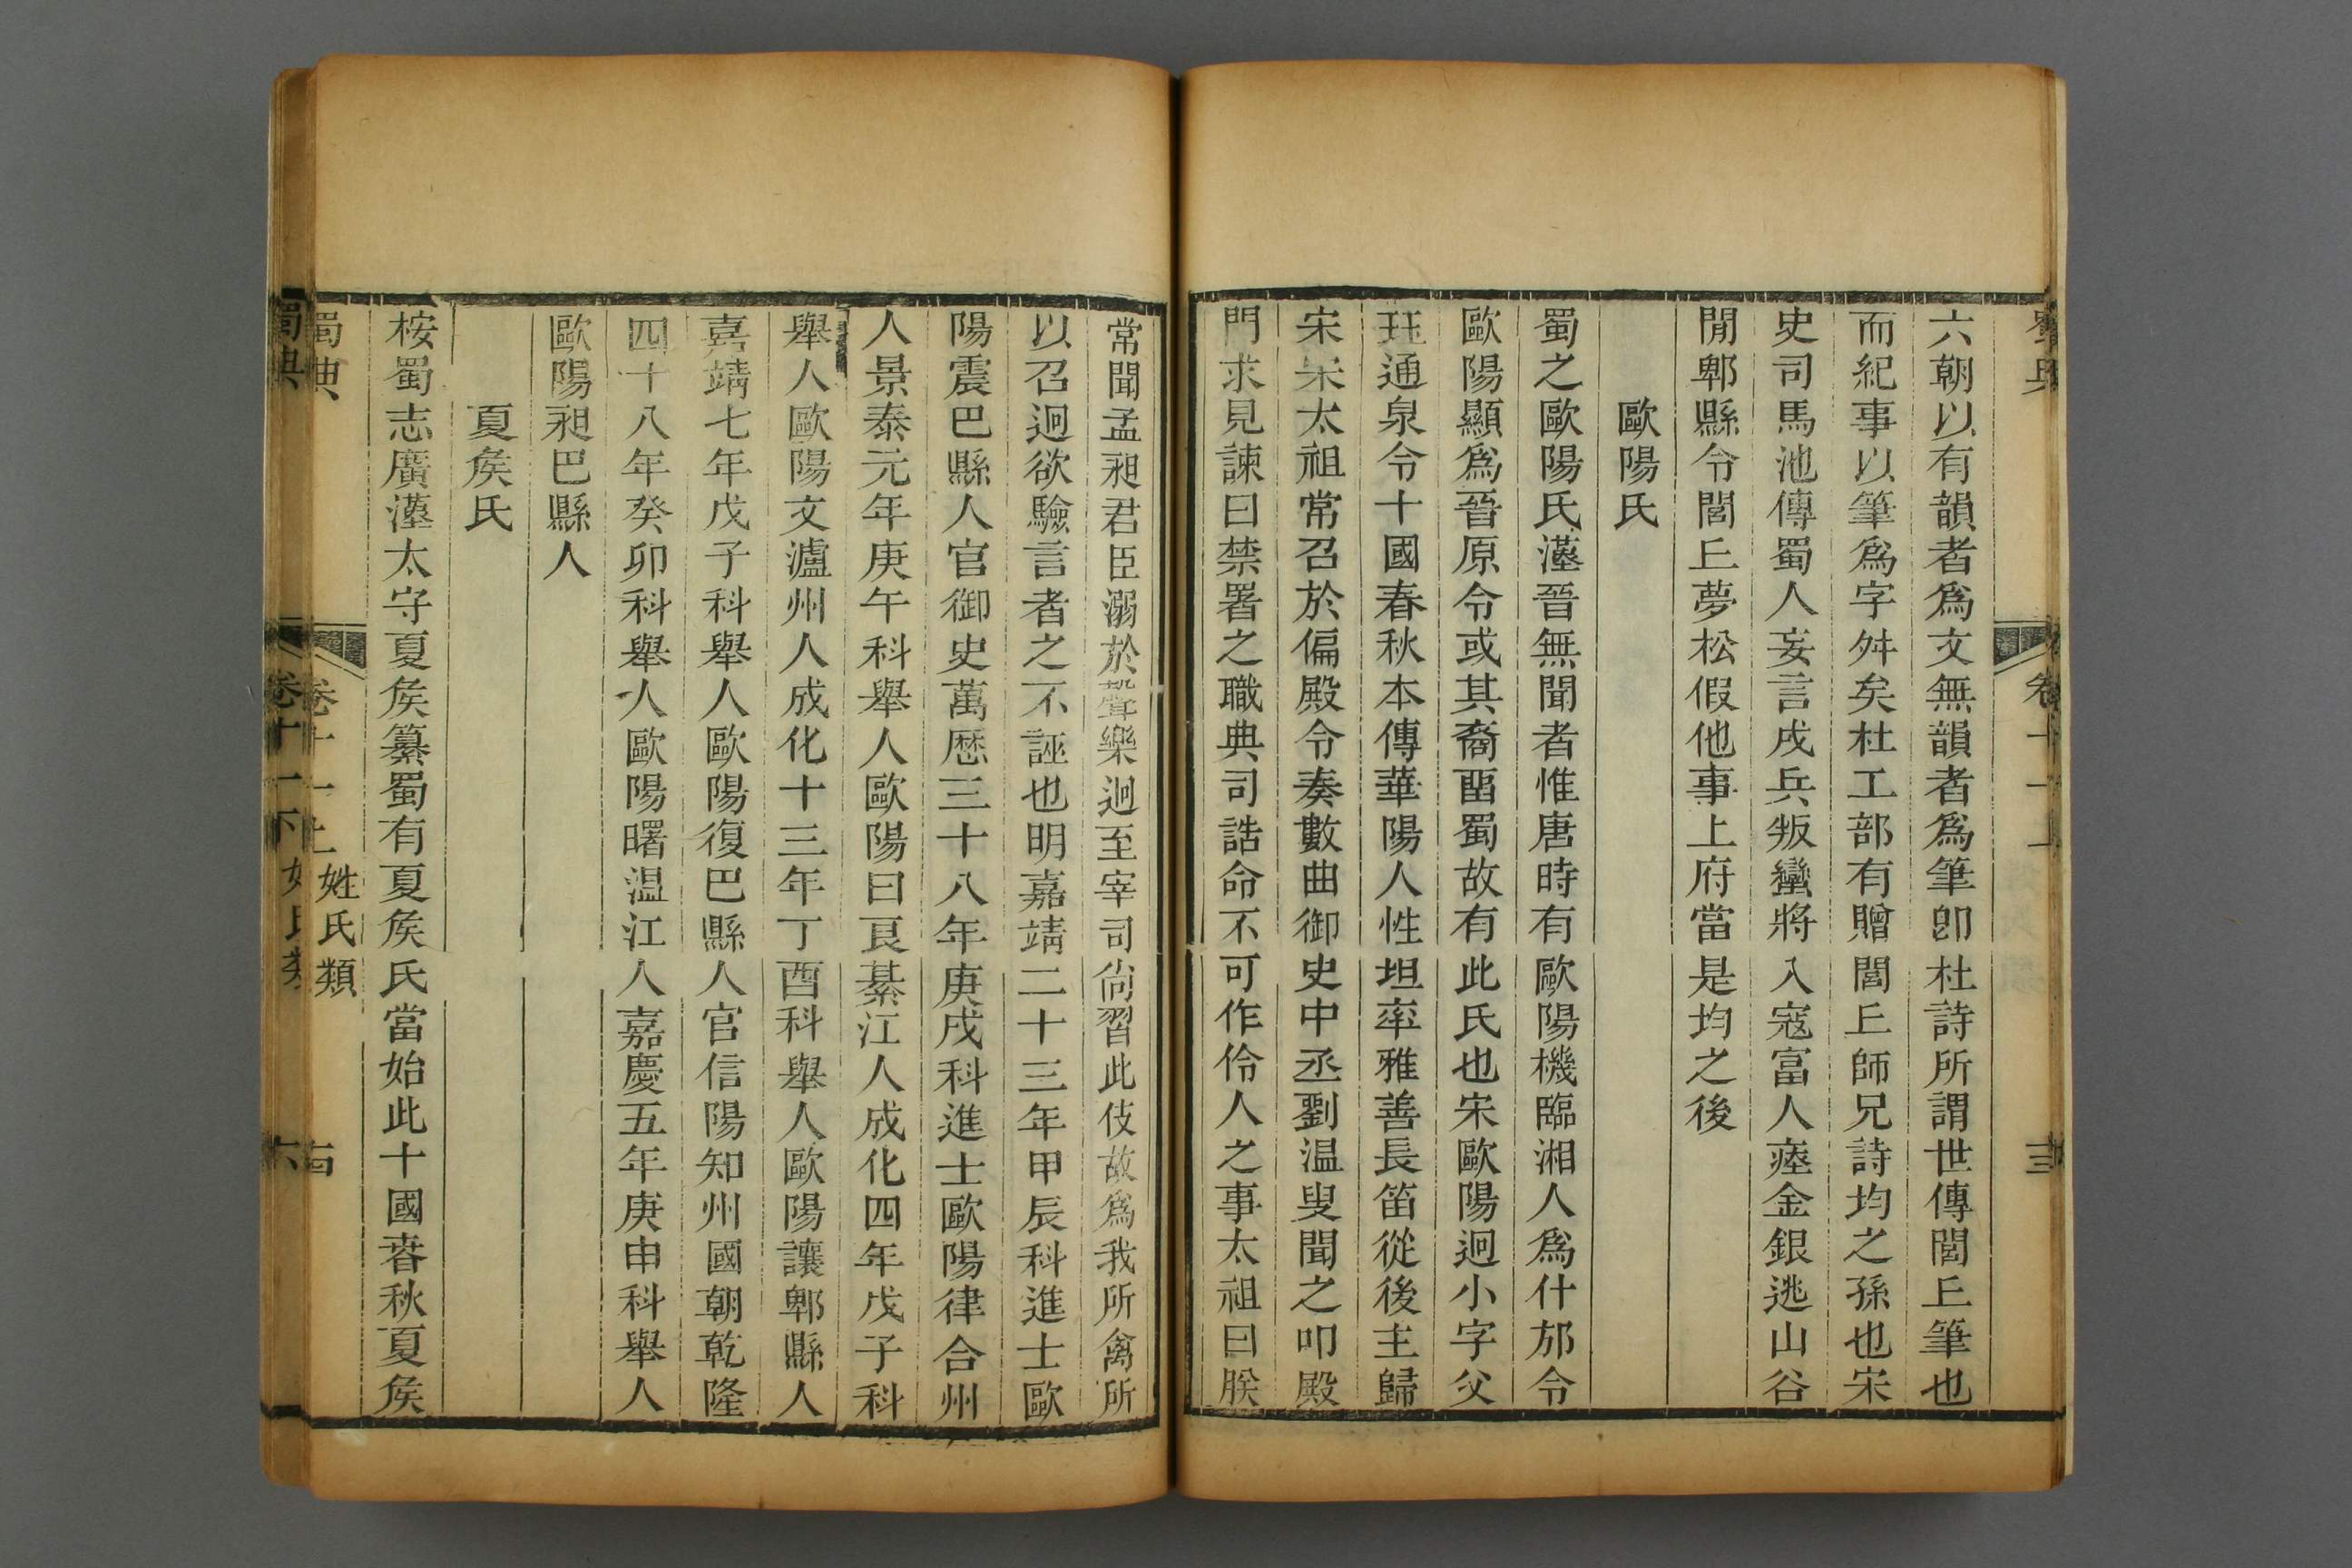 六朝以有韻者爲文無韻者爲筆卽杜詩所謂世傳閭丘筆也
而紀事以筆爲字舛矣杜工部有贈閭丘師兄詩均之孫也宋
史司馬池傳蜀人妄言戍兵叛蠻將入寇富人瘞金銀逃山谷
閒郫縣令閭丘夢松假他事上府當是均之後
歐陽氏
蜀之歐陽氏漢晉無聞者惟唐時有歐陽機臨湘人爲什邡令
歐陽顯爲晉原令或其裔畱蜀故有此氏也宋歐陽迥小字父
珏通泉令十國春秋本傳華陽人性坦率雅善長笛從後主歸
宋宋太祖常召於偏殿令奏數曲御史中丞劉温叟聞之叩殿
門求見諫曰禁署之職典司誥命不可作伶人之事太祖曰朕
常聞孟昶君臣溺於聲樂迥至宰司尙習此伎故爲我所禽所
以召迥欲驗言者之不誣也明嘉靖二十三年甲辰科進士歐
陽震巴縣人官御史萬歷三十八年庚戌科進士歐陽律合州
人景泰元年庚午科舉人歐陽曰良綦江人成化四年戊子科
舉人歐陽文瀘州人成化十三年丁酉科舉人歐陽讓郫縣人
嘉靖七年戊子科舉人歐陽復巴縣人官信陽知州國朝乾隆
四十八年癸卯科舉人歐陽曙温江人嘉慶五年庚申科舉人
歐陽昶巴縣人
夏矦氏
桉蜀志廣漢太守夏矦纂蜀有夏矦氏當始此十國春秋夏矦
蜀典
卷十一上
姓氏類
卷十一下